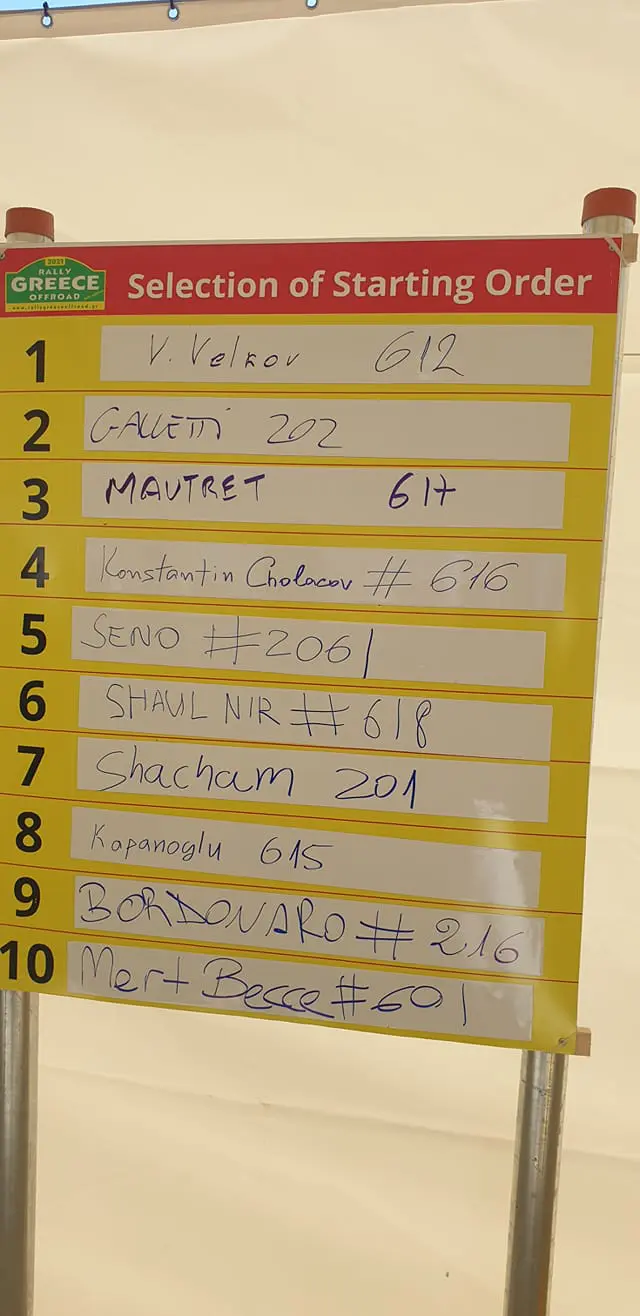 2021
RALLY
GREECE
OFFROAD
www.rallygreeceoffroad.gr
Selection of Starting Order
1 V. Velkov 612
2 GALLETTI 202
3 MAUTRET 617
4 Konstantin Cholacov # 616
5 SENO #206
6 SHAUL NIR # 618
7 Shacham 201
8 Kapanoglu 615
9 BORDONARO # 216
10 Mert Becce #601